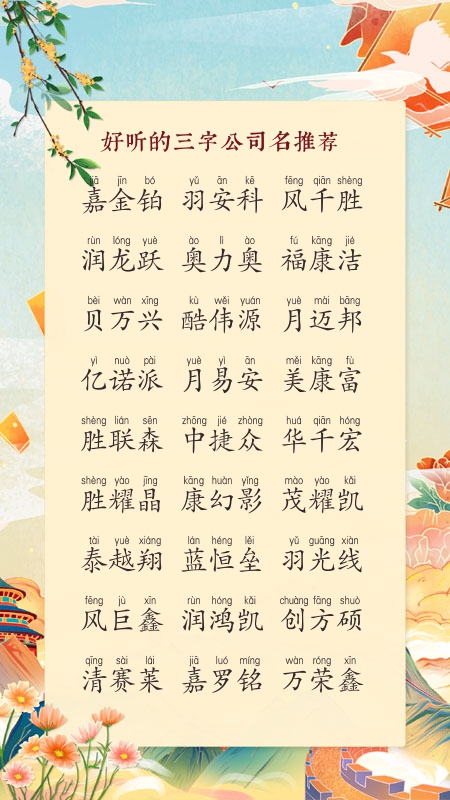 好听的三字公司名推荐
jiā jīn bó yǔ ān kē fēng qiān shèng
嘉金铂 羽安科 风千胜
rùn lóng yuè ào lì ào fú kāng jié
润龙跃 奥力奥 福康洁
bèi wàn xīng kù wěi yuán yuè mài bāng
贝万兴 酷伟源 月迈邦
yì nuò pài yuè yì ān měi kāng fù
亿诺派 月易安 美康富
shèng lián sēn zhōng jié zhòng huá qiān hóng
胜联森 中捷众 华千宏
shèng yào jīng kāng huàn yǐng mào yào kǎi
胜耀晶 康幻影 茂耀凯
tài yuè xiáng lán héng lěi yǔ guāng xiàn
泰越翔 蓝恒垒 羽光线
fēng jù xīn rùn hóng kǎi chuàng fāng shuò
风巨鑫 润鸿凯 创方硕
qīng sài lái jiā luó míng wàn róng xīn
清赛莱 嘉罗铭 万荣鑫